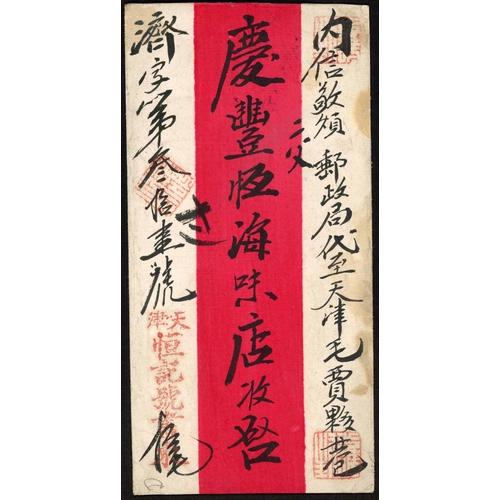 内信敬煩郵政局代至天津毛賈夥巷
二父
慶豐恆海味店收啓
濟字第叁佰壹號
天津
恒記號